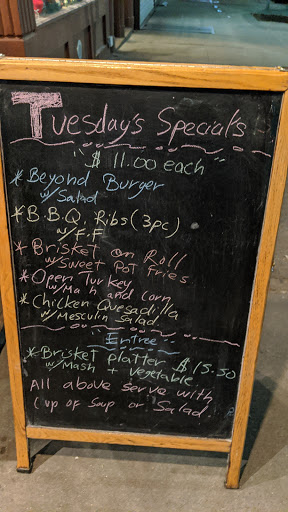 Tuesday's Special's
"$ 11.00 each"
* Beyond Burger
w/Salad
* B.B.Q. Ribs (3pc)
w/F.F
* Brisket on Roll
w/Sweet Pot Fries
* Open Turkey
w/Mash and Corn
* Chicken Quesadilla
w/Mesculin Salad
Entree
* Brisket Platter $15.50
w/Mash + Vegetable
All above serve with
Cup of Soup or Salad